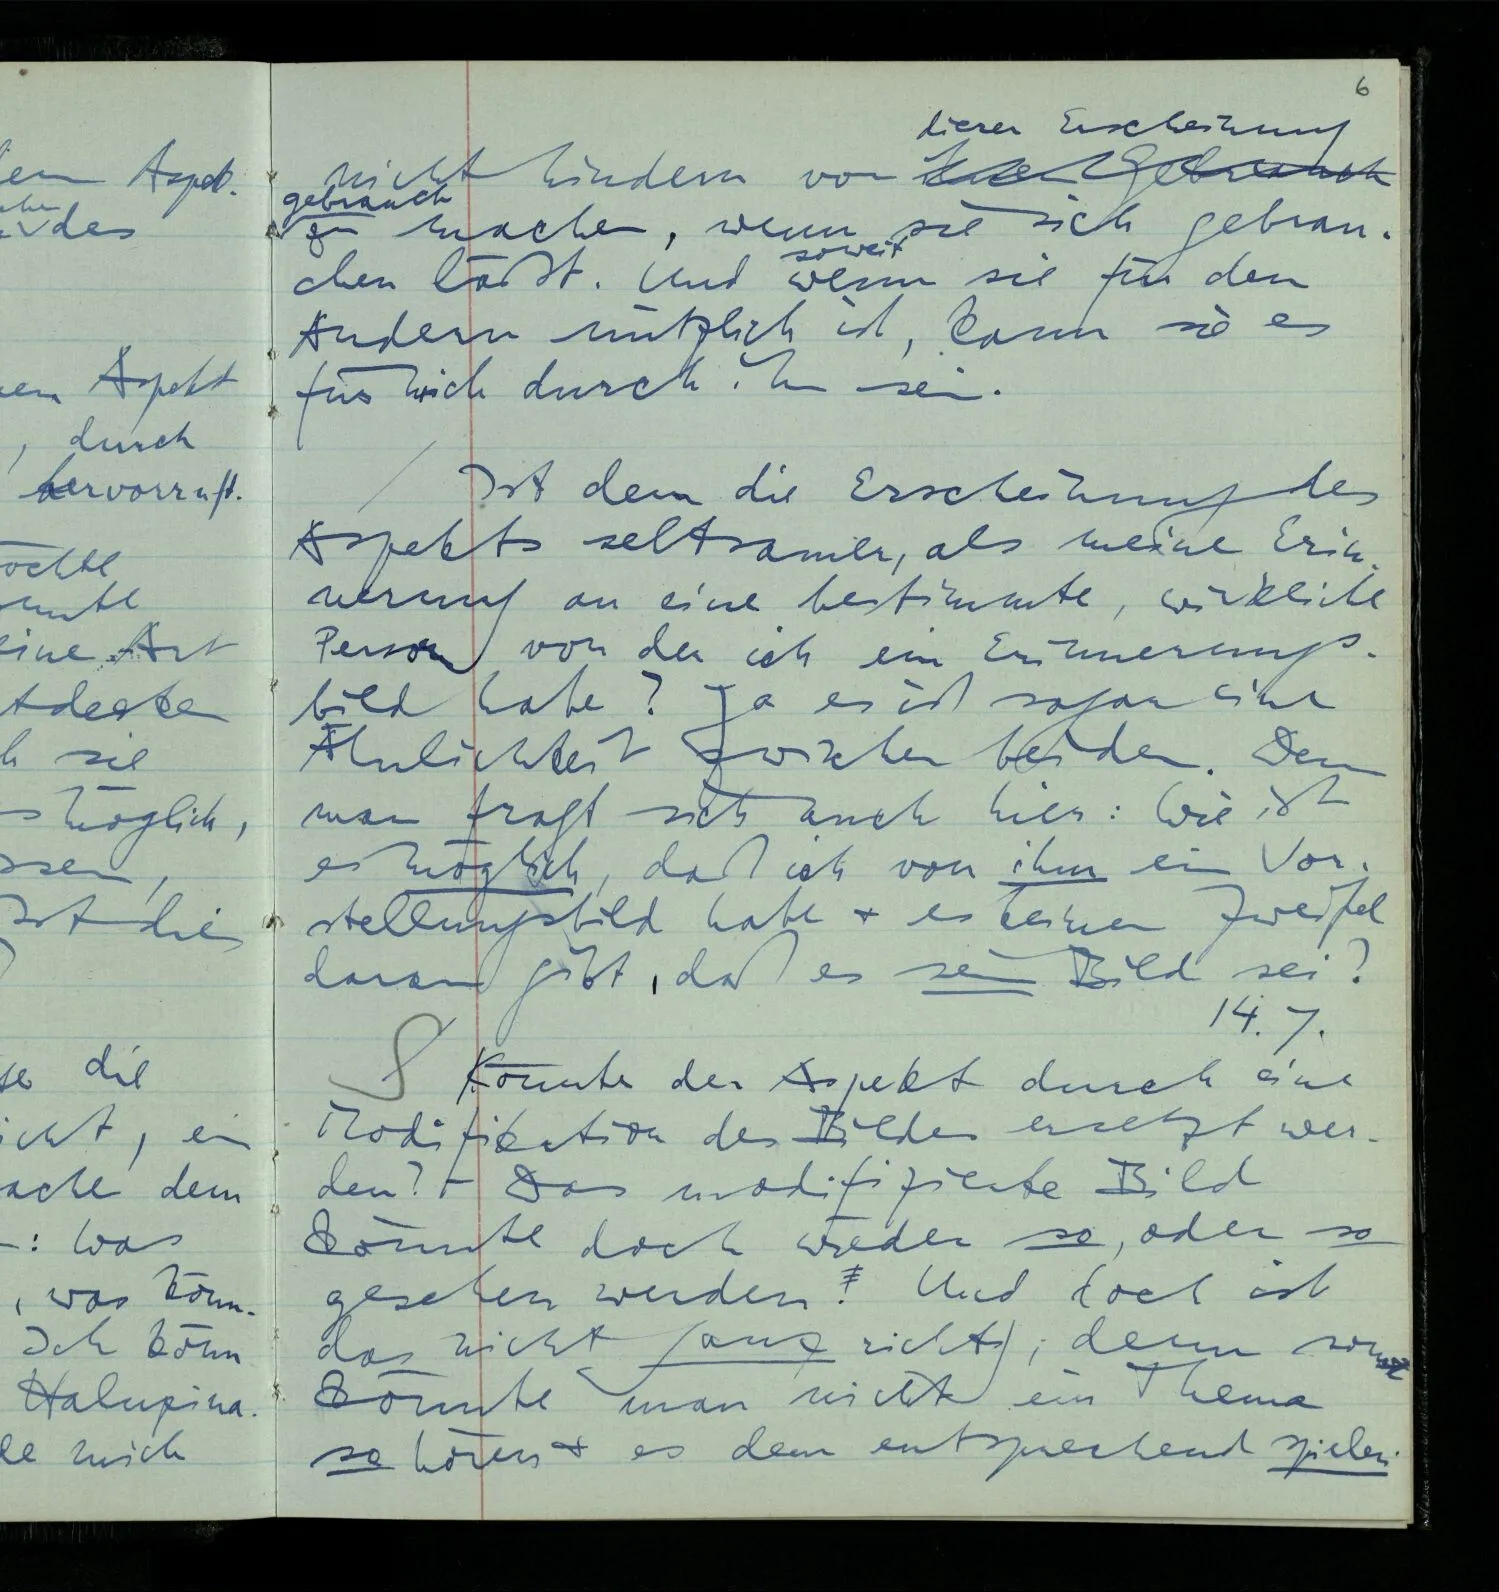 6
dieser Erscheinung
nicht hindern von
gebrauch
zu machen, wenn sie sich gebrau-
soweit
chen läßt. Und wenn sie für den
Andern nützlich ist, kann sie es
für mich durch ihn sein.
/ Ist denn die Erscheinung des
Aspekts seltsamer, als meine Erin-
nerung an eine bestimmte, wirkliche
Person von der ich ein Erinnerungs-
bild habe? Ja es ist sogar eine
Ähnlichkeit zwischen beiden. Denn
man fragt sich auch hier: Wie ist
es möglich, daß ich von ihm ein Vor-
stellungsbild habe + es keinen Zweifel
daran gibt, daß es sein Bild sei?
14. 7.
Könnte der Aspekt durch eine
Modifikation des Bildes ersetzt wer-
den? – Das modifizierte Bild
könnte doch wieder so, oder so
gesehen werden! Und doch ist
das nicht ganz richtig; denn sonst
könnte man nicht ein Thema
so hören + es dem entsprechend spielen.
dem Aspek-
des
Aspekt
, durch
hervorruft.
eine Art
sie
möglich,
Ist die
die
, ein
dem
: Was
, was könn-
Ich könn
Halluzina-
mich